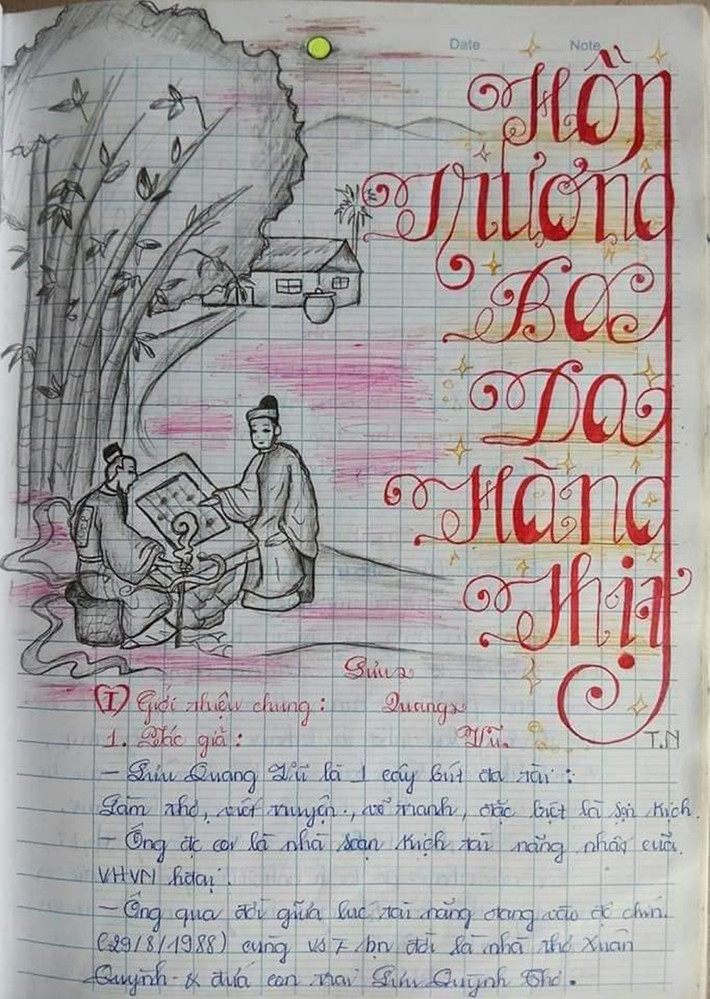 Date Note
Hồn
Trương
Ba
Da
Hàng
Thịt
Lưu
Quang
Vũ.
T.N
I Giới thiệu chung:
1. Tác giả:
- Lưu Quang Vũ là 1 cây bút đa tài:
Làm thơ, viết truyện, vẽ tranh, đặc biệt là soạn kịch.
- Ông đc coi là nhà soạn kịch tài năng nhất của
VHVN hđại.
- Ông qua đời giữa lúc tài năng đang vào độ chín.
(29/8/1988) cùng vs bạn đời là nhà thơ Xuân
Quỳnh & đứa con trai Lưu Quỳnh Thơ.